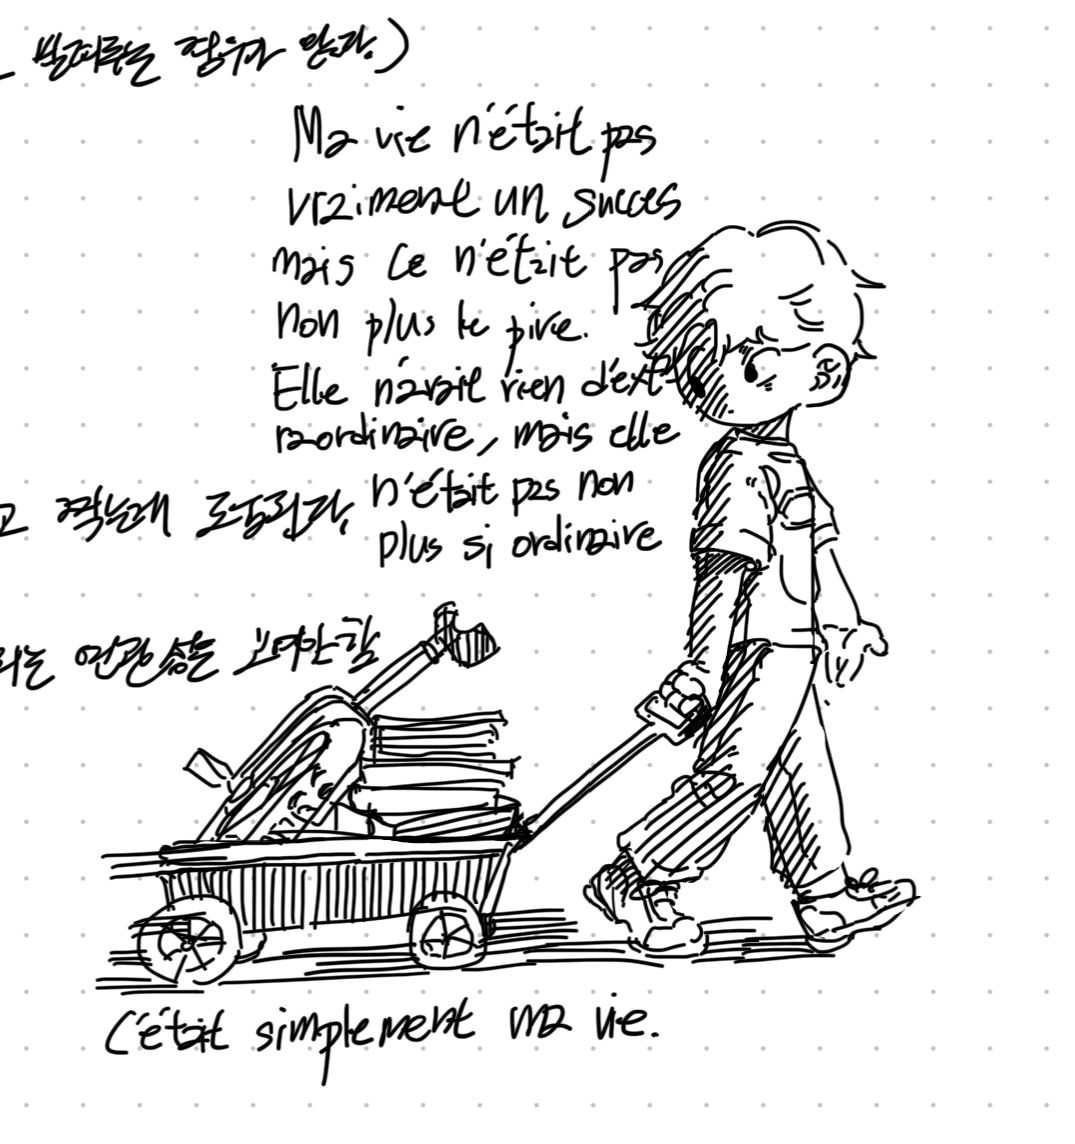 경우가 많다.)
Ma vie n'était pas
vraiment un succes
mais ce n'était pas
non plus le pire.
Elle n'avait rien d'ext-
raordinaire, mais elle
n'était pas non
plus si ordinaire
찍는데 도움된다.
는 연관성을 고려안함
C'était simplement ma vie.